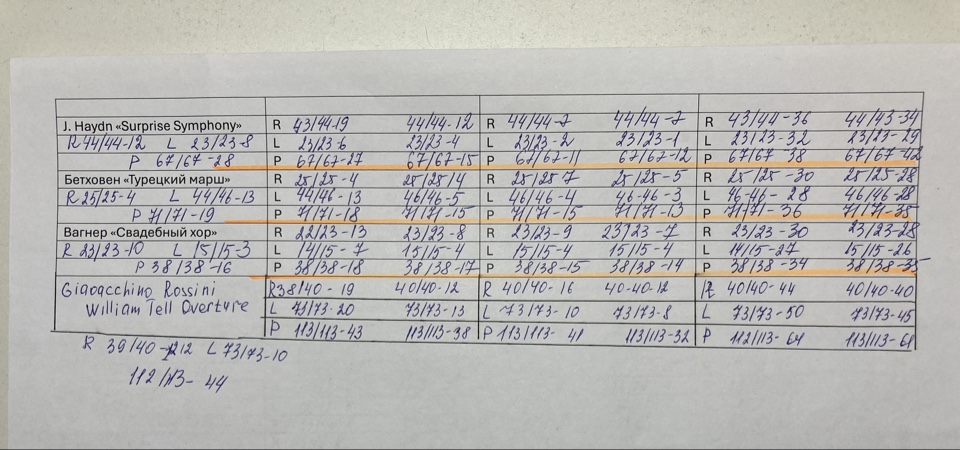 J. Haydn «Surprise Symphony» R 43/44-19 44/44-12 R 44/44-7 44/44-7 R 43/44-36 44/43-34
R 44/44-12 L 23/23-8 L 23/23-6 23/23-4 L 23/23-2 23/23-1 L 23/23-32 23/23-29
P 67/67-28 P 67/67-27 67/67-15 P 67/67-11 67/67-12 P 67/67-38 67/67-42
Бетховен «Турецкий марш» R 25/25-4 25/25/4 R 25/25 7 25/25-5 R 25/25-30 25/25-28
R 25/25-4 L 44/46-13 L 44/46-13 46/46-5 L 46/46-4 46-46-3 L 46-46-28 46/46-28
P 71/71-19 P 71/71-18 71/71-15 P 71/71-15 71/71-13 P 71/71-36 71/71-35
Вагнер «Свадебный хор» R 22/23-13 23/23-8 R 23/23-9 23/23-7 R 23/23-30 23/23-28
R 23/23-10 L 15/15-3 L 14/15-7 15/15-4 L 15/15-4 15/15-4 L 14/15-27 15/15-26
P 38/38-16 P 38/38-18 38/38-17 P 38/38-15 38/38-14 P 38/38-34 38/38-35
Gioacchino Rossini R 38/40-19 40/40-12 R 40/40-16 40-40-12 R 40/40-44 40/40-40
William Tell Overture L 73/73-20 73/73-13 L 73/73-10 73/73-8 L 73/73-50 73/73-45
P 113/113-43 113/113-38 P 113/113-41 113/113-32 P 112/113-64 113/113-61
R 39/40-12 L 73/73-10
112/113-44